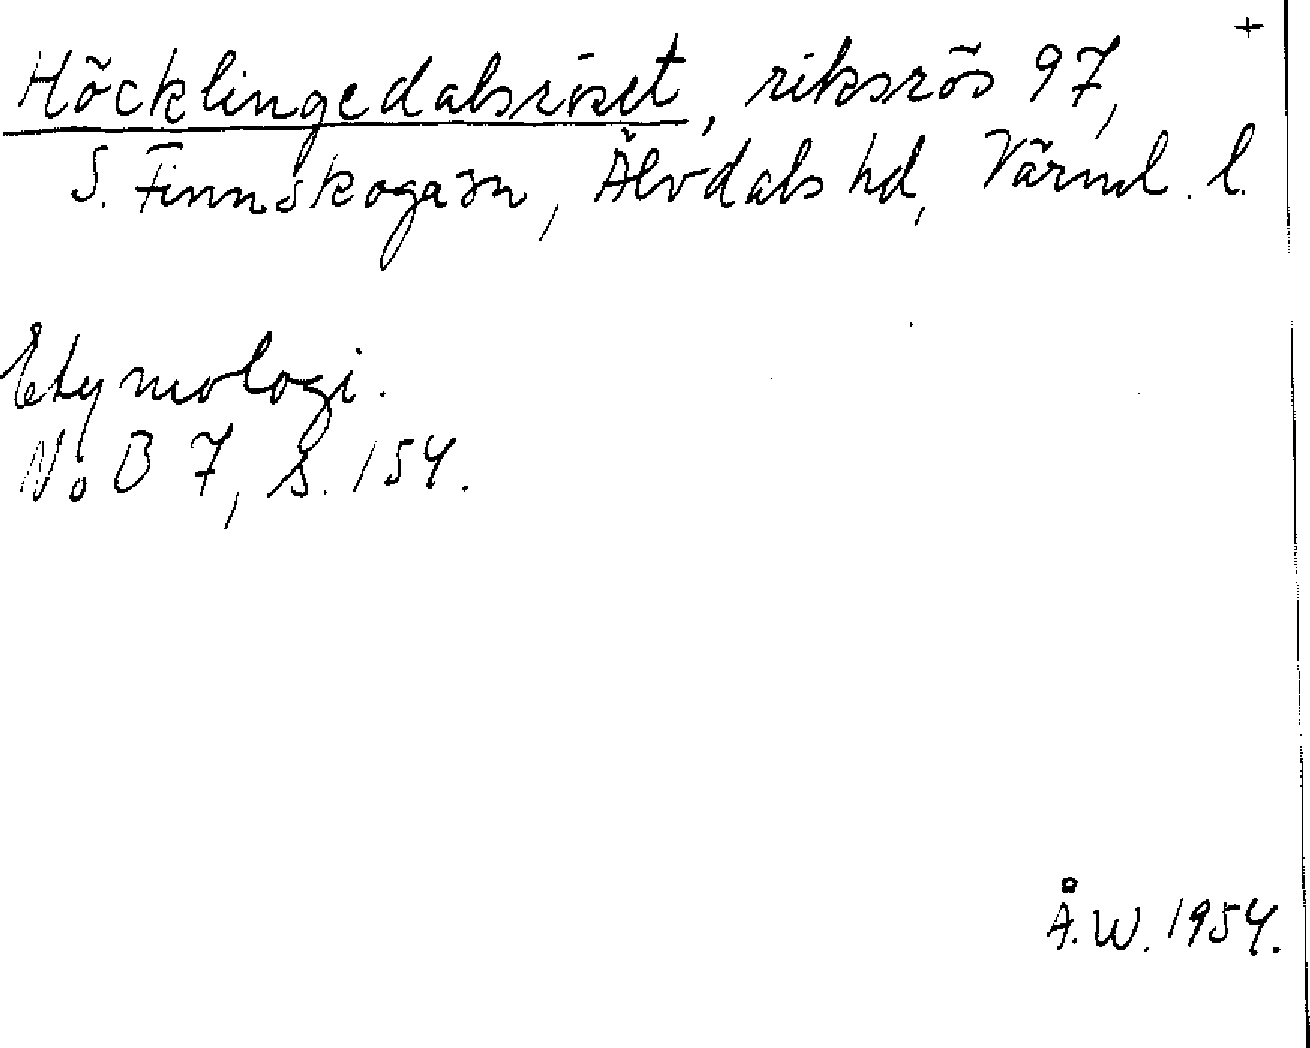 +
Höcklingedalsröset, riksrös 97,
S. Finnskoga sn, Älvdals hd, Värml. l.
Etymologi.
NoB 7, s. 154.
Å.W. 1954.